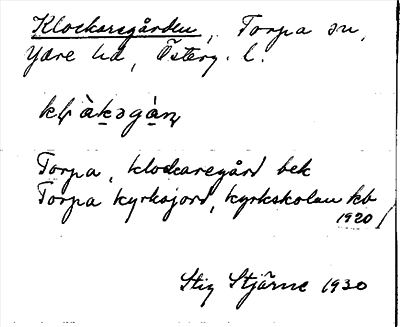 Klockaregården, Torpa sn,
Ydre hd, Österg. l.
klåkəgàɳ
Torpa, klockaregård bek
Torpa kyrksjord, kyrkskolan kb
1920
Stig Stjärne 1930